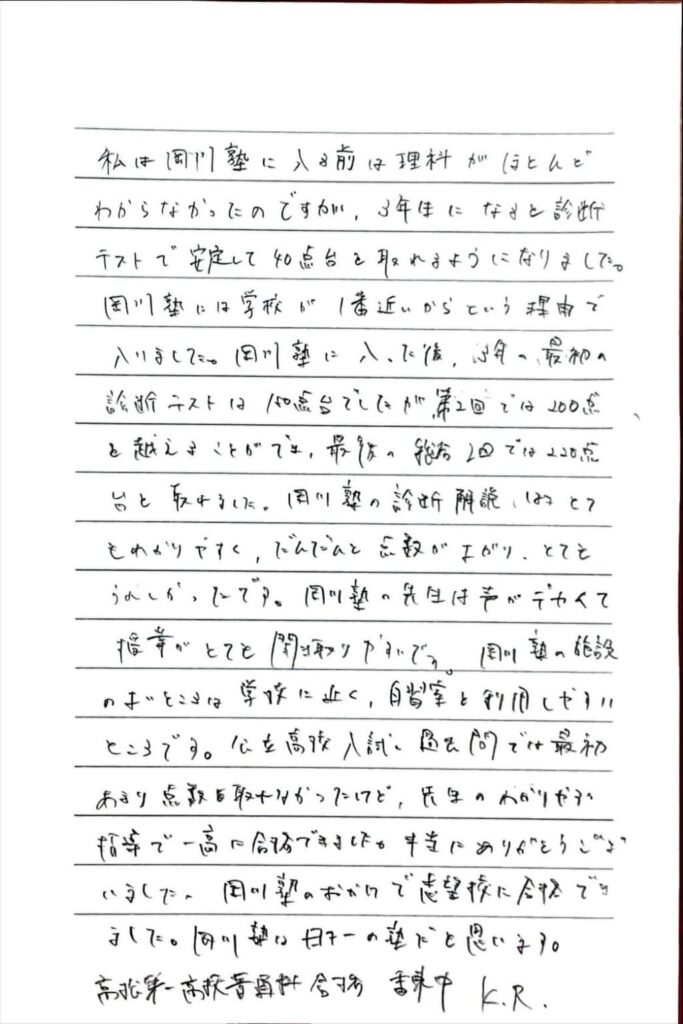 私は岡川塾に入る前は理科がほとんど
わからなかったのですが、3年生になると診断
テストで安定して40点台を取れるようになりました。
岡川塾には学校が1番近いからという理由で
入りました。岡川塾に入った後、3年の最初の
診断テストは150点台でしたが第2回では200点
を越えることができ、最後の総合2回では220点
台を取れました。岡川塾の診断解説はとて
もわかりやすく、だんだんと点数が上がり、とても
うれしかったです。岡川塾の先生は声がデカくて
授業がとても聞き取りやすいです。岡川塾の施設
のよいところは学校に近く、自習室を利用しやすい
ところです。公立高校入試、過去問では最初
あまり点数を取れなかったけど、先生のわかりやすい
指導で一高に合格できました。本当にありがとうござ
いました。岡川塾のおかげで志望校に合格でき
ました。岡川塾は一の塾だと思います。
高松第一高校普通科合格 香東中 K.R.